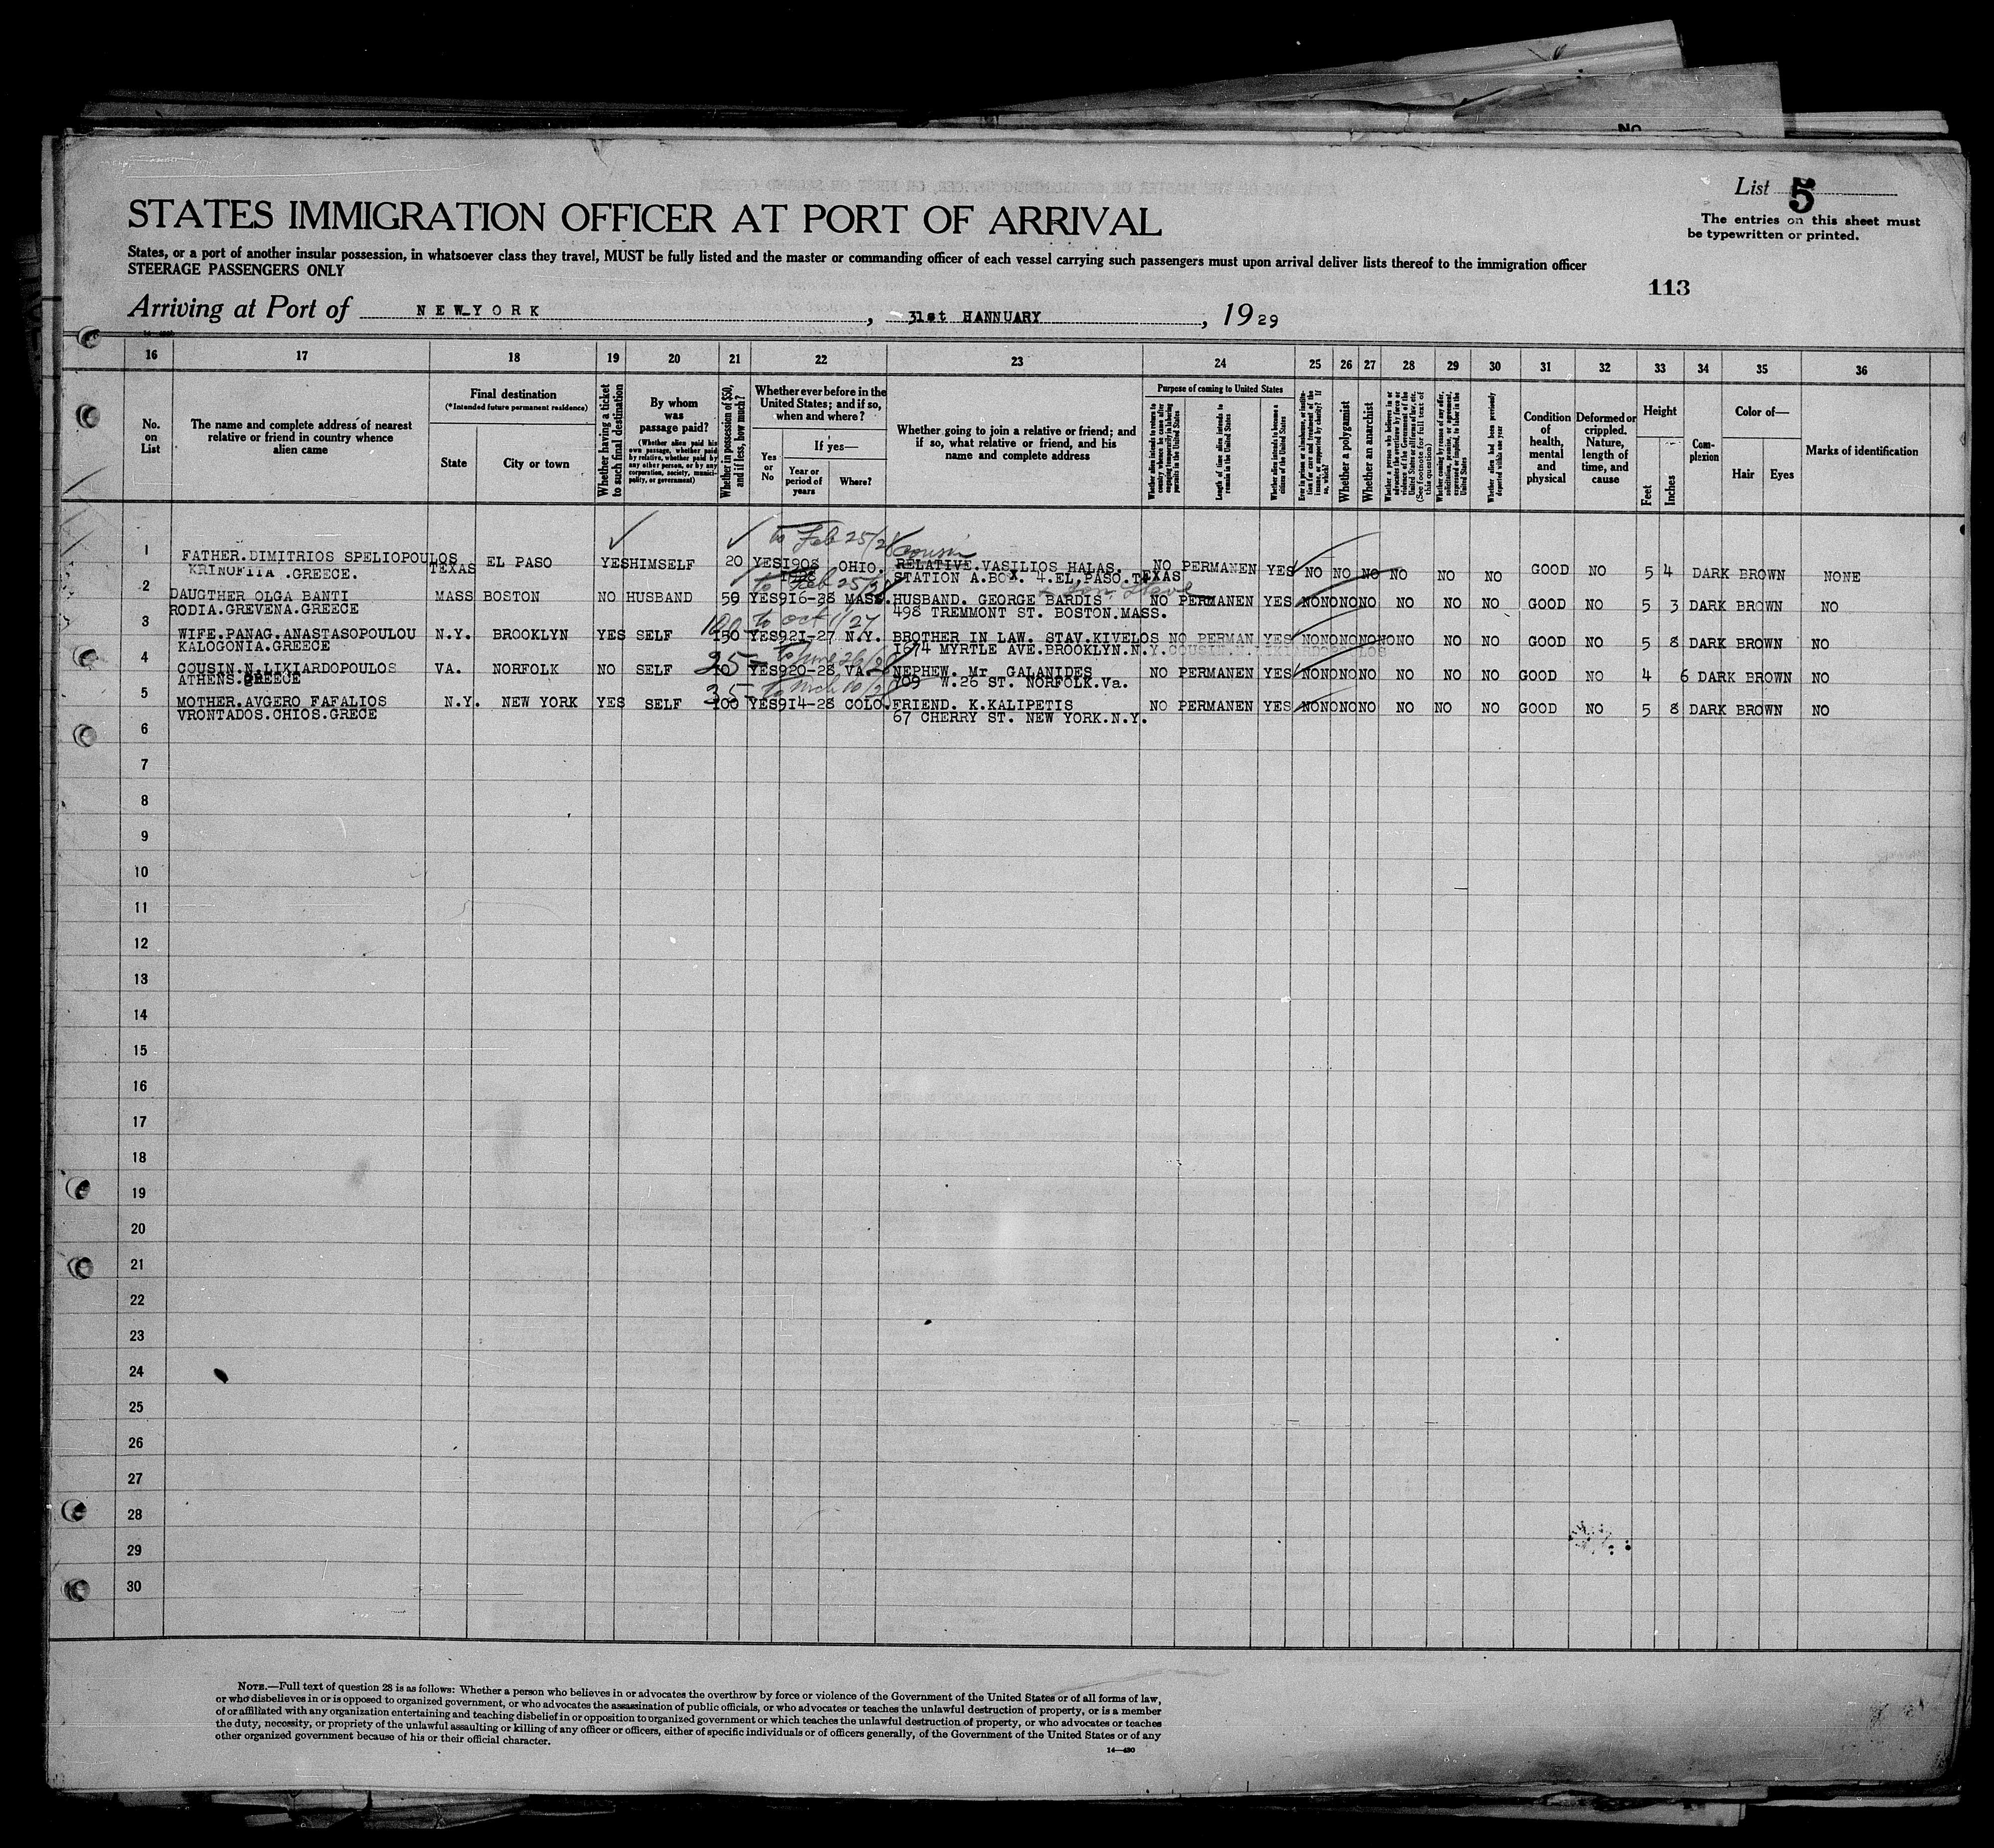 No
List 5
The entries on this sheet must
be typewritten or printed.
STATES IMMIGRATION OFFICER AT PORT OF ARRIVAL
States, or a port of another insular possession, in whatsoever class they travel, MUST be fully listed and the master or commanding officer of each vessel carrying such passengers must upon arrival deliver lists thereof to the immigration officer
STEERAGE PASSENGERS ONLY
113
Arriving at Port of NEW YORK, 31st HANNUARY, 1929
16 17 18 19 20 21 22 23 24 25 26 27 28 29 30 31 32 33 34 35 36
No.
on
List
The name and complete address of nearest
relative or friend in country whence
alien came
Final destination
(*Intended future permanent residence)
State
City or town
Whether having a ticket
to such final destination
By whom
was
passage paid?
(Whether alien paid his
own passage, whether paid
by relative, whether paid by
any other person, or by any
corporation, society, munici-
pality, or government)
Whether in possession of $50,
and if less, how much?
Whether ever before in the
United States; and if so,
when and where?
Yes
or
No
If yes—
Year or
period of
years
Where?
Whether going to join a relative or friend; and
if so, what relative or friend, and his
name and complete address
Purpose of coming to United States
Whether alien intends to return to
country whence he came after
engaging temporarily in laboring
pursuits in the United States
Length of time alien intends to
remain in the United States
Whether alien intends to become a
citizen of the United States
Ever in prison or almshouse, or institu-
tion for care and treatment of the
insane, or supported by charity? If
so, which?
Whether a polygamist
Whether an anarchist
Whether a person who believes in or
advocates the overthrow by force or
violence of the Government of the
United States or all forms of law, etc.
(See footnote for full text of
this question)
Whether coming by reason of any offer,
solicitation, promise, or agreement,
expressed or implied, to labor in the
United States
Whether alien had been previously
deported within one year
Condition
of
health,
mental
and
physical
Deformed or
crippled.
Nature,
length of
time, and
cause
Height
Feet
Inches
Com-
plexion
Color of—
Hair
Eyes
Marks of identification
to Feb 25/28 cousin
1 FATHER.DIMITRIOS SPELIOPOULOS TEXAS EL PASO YES HIMSELF 20 YES 1908 OHIO. RELATIVE.VASILIOS HALAS. NO PERMANEN YES NO NO NO NO NO NO GOOD NO 5 4 DARK BROWN NONE
.GREECE. 1928 STATION A.BOX. 4.EL.PASO.TEXAS
to Feb 25/28 + son
2 DAUGTHER OLGA BANTI MASS BOSTON NO HUSBAND 50 YES 916-28 MASS. HUSBAND. GEORGE BARDIS NO PERMANEN YES NO NO NO NO NO NO GOOD NO 5 3 DARK BROWN NO
RODIA.GREVENA.GREECE 498 TREMMONT ST. BOSTON.MASS.
100 to Oct 1/27
3 WIFE.PANAG.ANASTASOPOULOU N.Y. BROOKLYN YES SELF 150 YES 921-27 N.Y. BROTHER IN LAW. STAV.KIVELOS NO PERMAN YES NO NO NO NO NO NO NO GOOD NO 5 8 DARK BROWN NO
KALOGONIA.GREECE 1674 MYRTLE AVE.BROOKLYN.N.Y. COUSIN.N.LIKIARDOPOULOS
25 to June 26/28
4 COUSIN.N.LIKIARDOPOULOS VA. NORFOLK NO SELF YES 920-28 VA. NEPHEW. Mr GALANIDES NO PERMANEN YES NO NO NO NO NO NO GOOD NO 4 6 DARK BROWN NO
ATHENS.GREECE 709 W.26 ST. NORFOLK.Va.
35 to March
5 MOTHER.AVGERO FAFALIOS N.Y. NEW YORK YES SELF 100 YES 914-28 COLO. FRIEND. K.KALIPETIS NO PERMANEN YES NO NO NO NO NO NO GOOD NO 5 8 DARK BROWN NO
VRONTADOS.CHIOS.GRECE 67 CHERRY ST. NEW YORK.N.Y.
6
7
8
9
10
11
12
13
14
15
16
17
18
19
20
21
22
23
24
25
26
27
28
29
30
NOTE.—Full text of question 28 is as follows: Whether a person who believes in or advocates the overthrow by force or violence of the Government of the United States or of all forms of law,
or who disbelieves in or is opposed to organized government, or who advocates the assassination of public officials, or who advocates or teaches the unlawful destruction of property, or is a member
of or affiliated with any organization entertaining and teaching disbelief in or opposition to organized government or which teaches the unlawful destruction of property, or who advocates or teaches
the duty, necessity, or propriety of the unlawful assaulting or killing of any officer or officers, either of specific individuals or of officers generally, of the Government of the United States or of any
other organized government because of his or their official character.
14—430